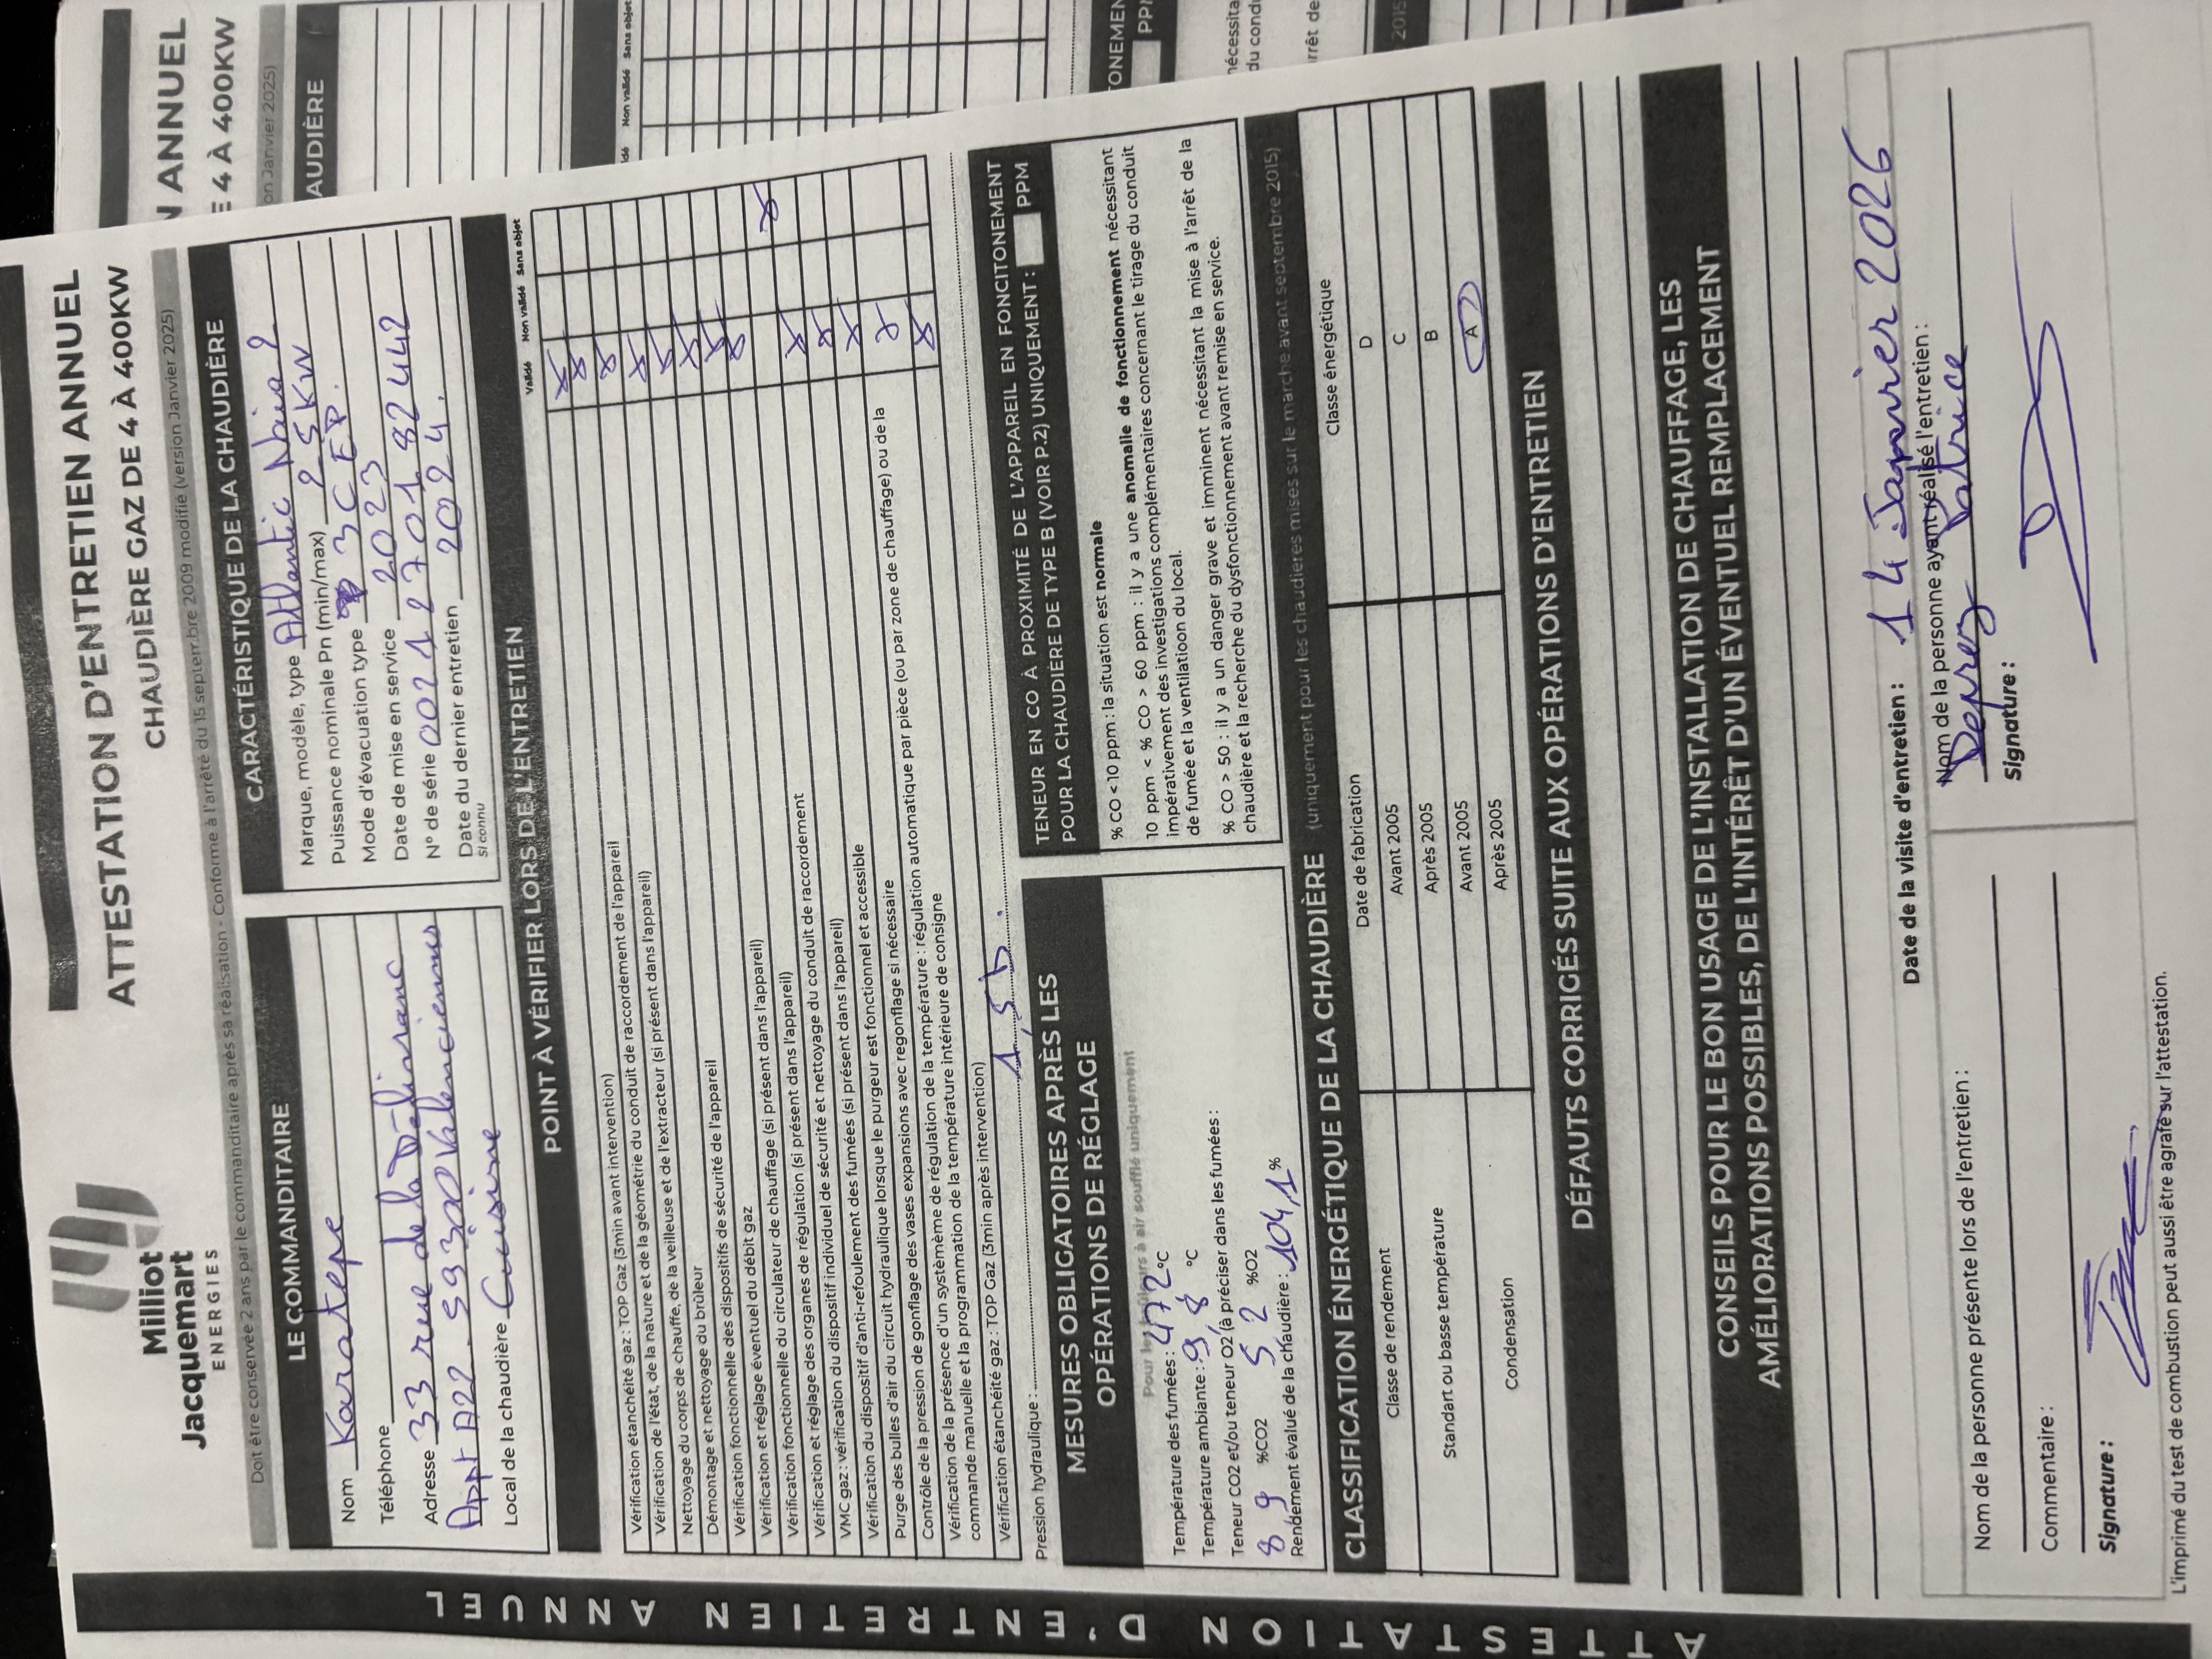 Milliot
Jacquemart
ENERGIES
ATTESTATION D'ENTRETIEN ANNUEL
CHAUDIÈRE GAZ DE 4 À 400KW
Doit être conservée 2 ans par le commanditaire après sa réalisation - Conforme à l'arrêté du 15 septembre 2009 modifié (version Janvier 2025)
LE COMMANDITAIRE
Nom Karatepe
Téléphone
Adresse 33 rue de la Délivrance
Appt A22 - 59300 Valenciennes
Local de la chaudière Cuisine
CARACTÉRISTIQUE DE LA CHAUDIÈRE
Marque, modèle, type Atlantic Naia 2
Puissance nominale Pn (min/max) 25KW
Mode d'évacuation type 3CEP.
Date de mise en service 2023
N° de série 0021270182442
Date du dernier entretien 2024.
si connu
POINT À VÉRIFIER LORS DE L'ENTRETIEN
Validé Non validé Sans objet
Vérification étanchéité gaz : TOP Gaz (3min avant intervention)
Vérification de l'état, de la nature et de la géométrie du conduit de raccordement de l'appareil
Nettoyage du corps de chauffe, de la veilleuse et de l'extracteur (si présent dans l'appareil)
Démontage et nettoyage du brûleur
Vérification fonctionnelle des dispositifs de sécurité de l'appareil
Vérification et réglage éventuel du débit gaz
Vérification fonctionnelle du circulateur de chauffage (si présent dans l'appareil)
Vérification et réglage des organes de régulation (si présent dans l'appareil)
VMC gaz : vérification du dispositif individuel de sécurité et nettoyage du conduit de raccordement
Vérification du dispositif d'anti-refoulement des fumées (si présent dans l'appareil)
Purge des bulles d'air du circuit hydraulique lorsque le purgeur est fonctionnel et accessible
Contrôle de la pression de gonflage des vases expansions avec regonflage si nécessaire
Vérification de la présence d'un systèmème de régulation de la température : régulation automatique par pièce (ou par zone de chauffage) ou de la
commande manuelle et la programmation de la température intérieure de consigne
Vérification étanchéité gaz : TOP Gaz (3min après intervention)
Pression hydraulique : 1,5b.
MESURES OBLIGATOIRES APRÈS LES
OPÉRATIONS DE RÉGLAGE
Pour les brûleurs à air soufflé uniquement
Température des fumées : 47,2 °C
Température ambiante : 9,8 °C
Teneur CO2 et/ou teneur O2 (à préciser dans les fumées :
8,9 %CO2 5,2 %O2
Rendement évalué de la chaudière : 104,1 %
TENEUR EN CO À PROXIMITÉ DE L'APPAREIL EN FONCITONEMENT
POUR LA CHAUDIÈRE DE TYPE B (VOIR P.2) UNIQUEMENT : PPM
% CO < 10 ppm : la situation est normale
10 ppm < % CO > 60 ppm : il y a une anomalie de fonctionnement nécessitant
impérativement des investigations complémentaires concernant le tirage du conduit
de fumée et la ventilatioon du local.
% CO > 50 : il y a un danger grave et imminent nécessitant la mise à l'arrêt de la
chaudière et la recherche du dysfonctionnement avant remise en service.
CLASSIFICATION ÉNERGÉTIQUE DE LA CHAUDIÈRE (uniquement pour les chaudieres mises sur le marche avant septembre 2015)
Classe de rendement Date de fabrication Classe énergétique
Standart ou basse température Avant 2005 D
Après 2005 C
Condensation Avant 2005 B
Après 2005 A
DÉFAUTS CORRIGÉS SUITE AUX OPÉRATIONS D'ENTRETIEN
CONSEILS POUR LE BON USAGE DE L'INSTALLATION DE CHAUFFAGE, LES
AMÉLIORATIONS POSSIBLES, DE L'INTÉRÊT D'UN ÉVENTUEL REMPLACEMENT
Date de la visite d'entretien : 14 Janvier 2026
Nom de la personne présente lors de l'entretien :
Commentaire :
Signature :
Nom de la personne ayant réalisé l'entretien :
Deprez Patrice
Signature :
L'imprimé du test de combustion peut aussi être agrafé sur l'attestation.
ATTESTATION D'ENTRETIEN ANNUEL
ANNUEL
E 4 À 400KW
on Janvier 2025)
AUDIÈRE
idé Non validé Sans objet
TONEMEN
PPM
nécessita
du condu
rrêt de
2015